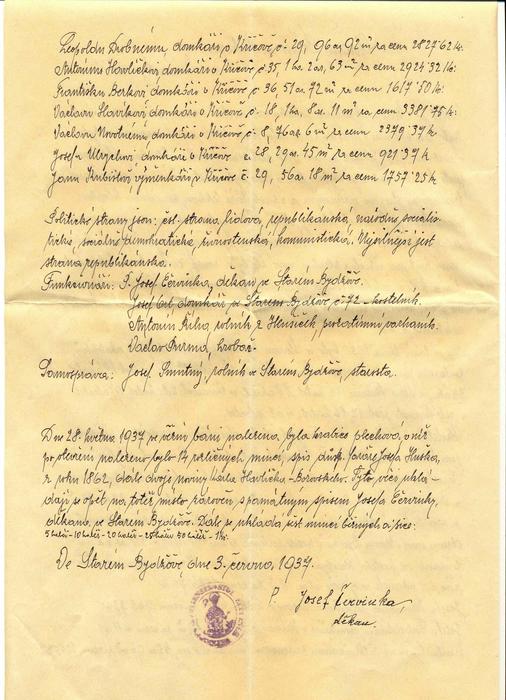 Leopoldu Drobnému, domkáři v Křičově, č. 29, 96 ar 92 m² za cenu 2827·62 h.
Antonínu Havlíčkovi domkáři v Křičově č 35, 1 ha. 2 ar, 63 m² za cenu 2924·32 h:
Františku Berkovi domkáři v Křičově č 36, 51 ar 72 m² za cenu 1617·50 h:
Václavu Slavíkovi domkáři v Křičově, č. 18, 1 ha, 8 ar. 11 m² za cenu 3381·75 h:
Václavu Novotnému domkáři v Křičově č. 8, 76 ar 6 m² za cenu 2379·37 h
Josefu domkáři v Křičově č. 28, 29 ar. 45 m² za cenu 921·37 h
Janu Kubištovi výměnkáři v Křičově č. 29, 56 ar 18 m² za cenu 1757·25 h
Politické strany jsou: čsl. strana lidová, republikánská, národně sociali-
stická, sociálně demokratická, živnostenská, komunistická, Nejsilnější jest
strana republikánská.
Funkcionáři: P. Josef Červinka, děkan ve Starém Bydžově.
Josef domkář ve Starém Bydžově č. 72 kostelník.
Antonín Říha, rolník z prozatímní varhaník.
Václav hrobař.
Samospráva: Josef Smutný, rolník ve Starém Bydžově, starosta.
Dne 28. května 1937 ve věžní báni nalezena, byla krabice plechová, v níž
po otevření nalezeno bylo 14 různých mincí, spis faráře Josefa Huska,
z roku 1862, dále dvoje noviny Karla Havlíčka-Borovského. Tyto věci uklá-
dají se opět na totéž místo zároveň s památným spisem Josefa Červinky,
děkana, ve Starém Bydžově. Dále se ukládá šest mincí běžných a sice:
5 haléř-10 haléř-20 haléř-25 haléř 50 haléř-1 Kč.
Ve Starém Bydžově, dne 3. června, 1937.
P. Josef Červinka,
děkan.